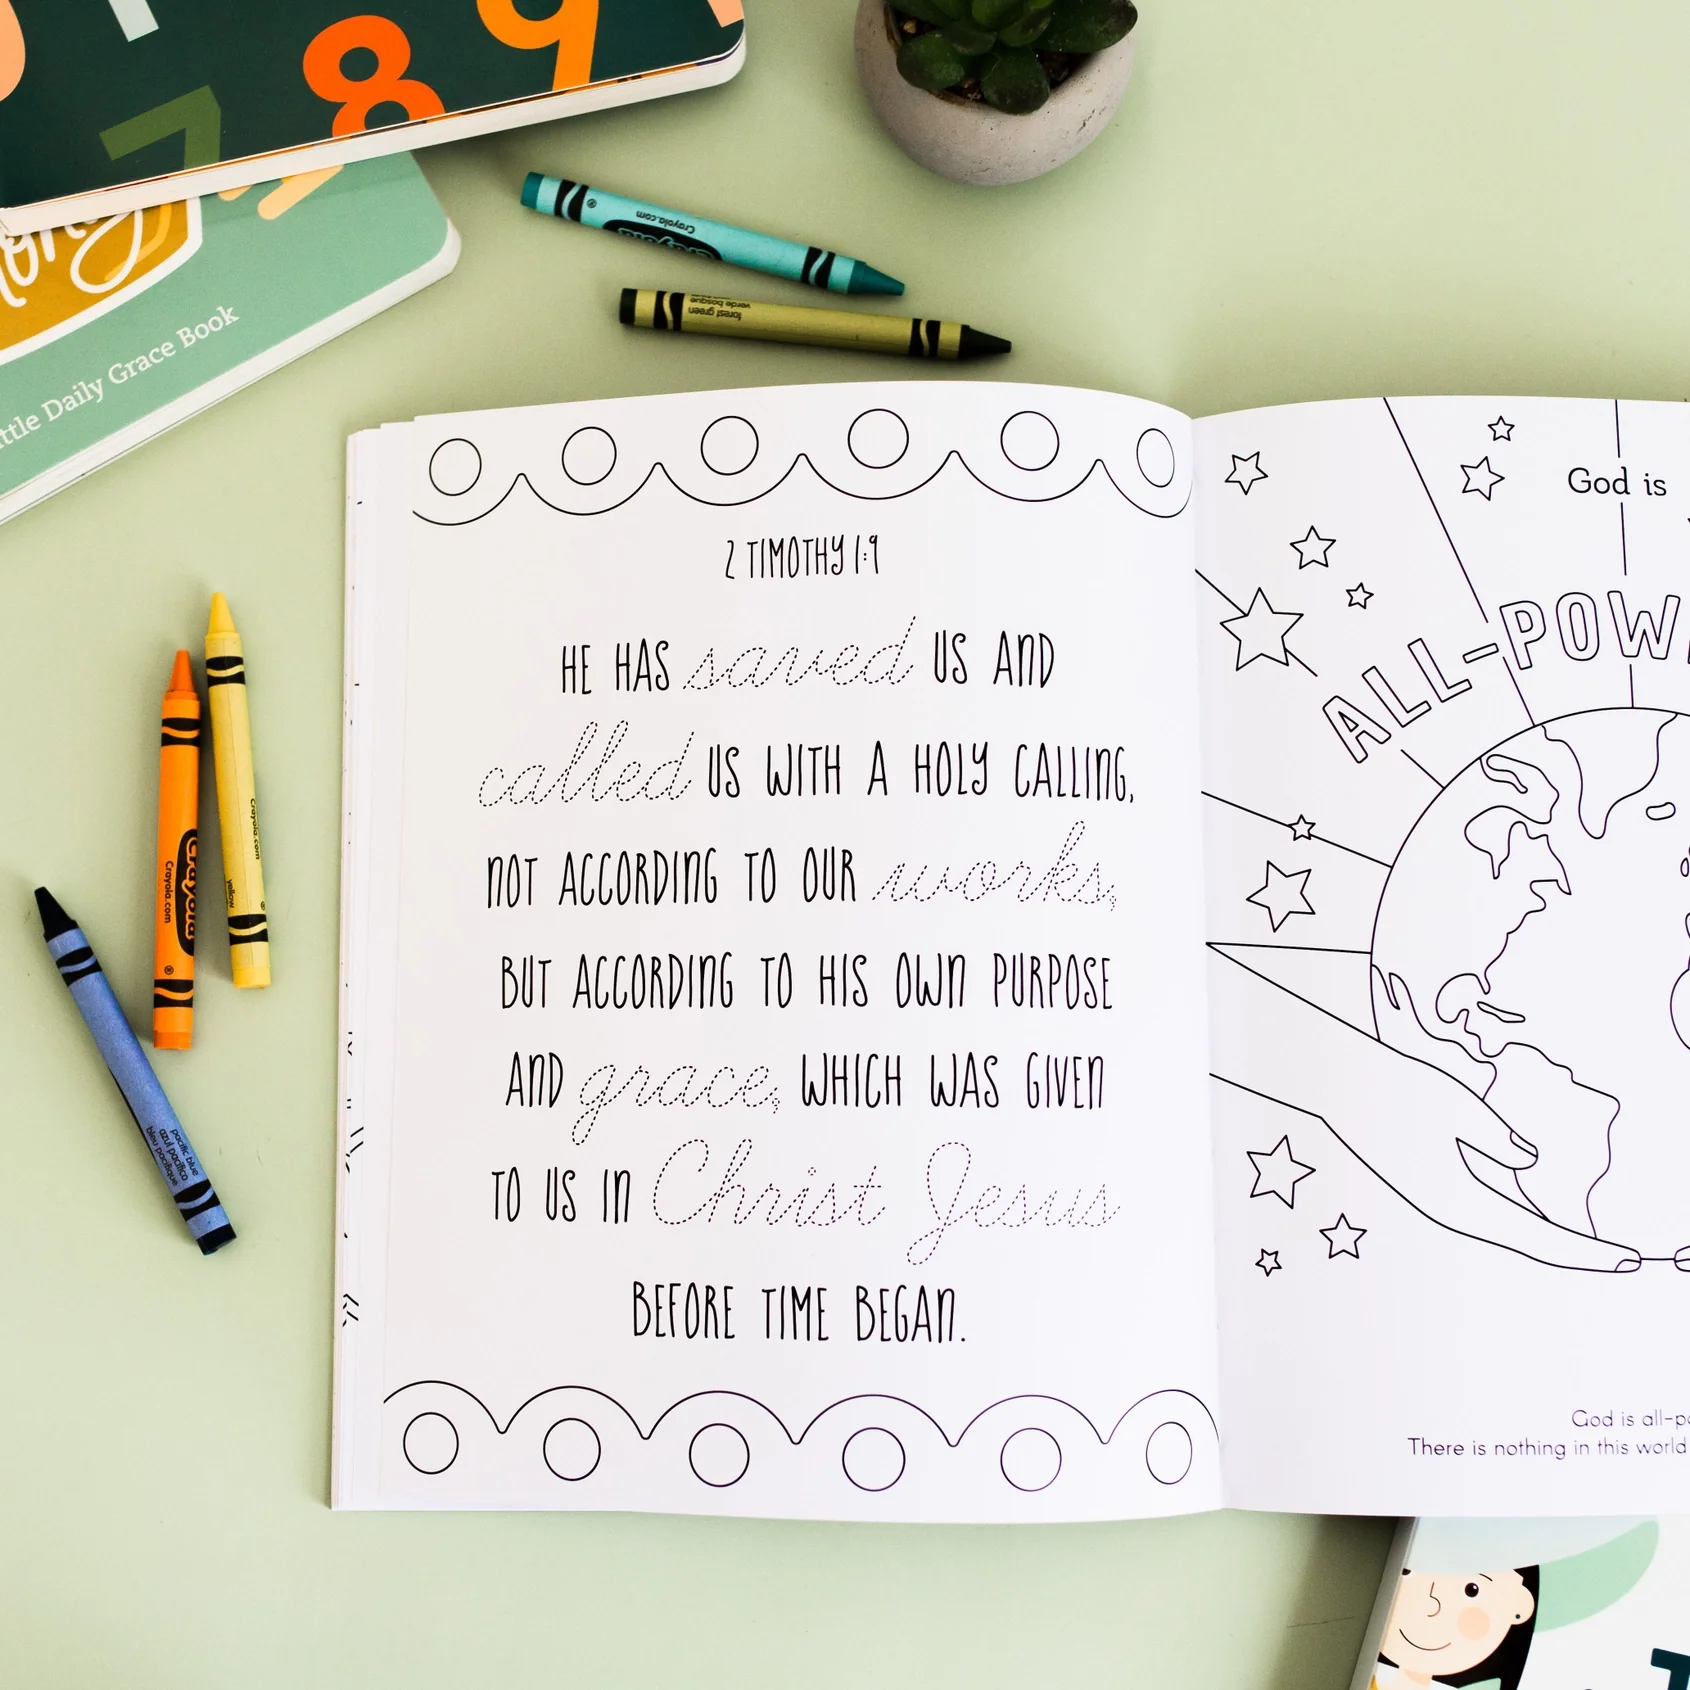 7 8 9
Little Daily Grace Book
Crayola
Crayola.com
forest green
verde bosque
Crayola
Crayola.com
Crayola.com
yellow
pacific blue
azul pacífico
bleu pacifique
2 TIMOTHY 1:9
HE HAS saved US AND
called US WITH A HOLY CALLING,
NOT ACCORDING TO OUR works,
BUT ACCORDING TO HIS OWN PURPOSE
AND grace, WHICH WAS GIVEN
TO US IN Christ Jesus
BEFORE TIME BEGAN.
God is
ALL-POW
God is all-po
There is nothing in this world